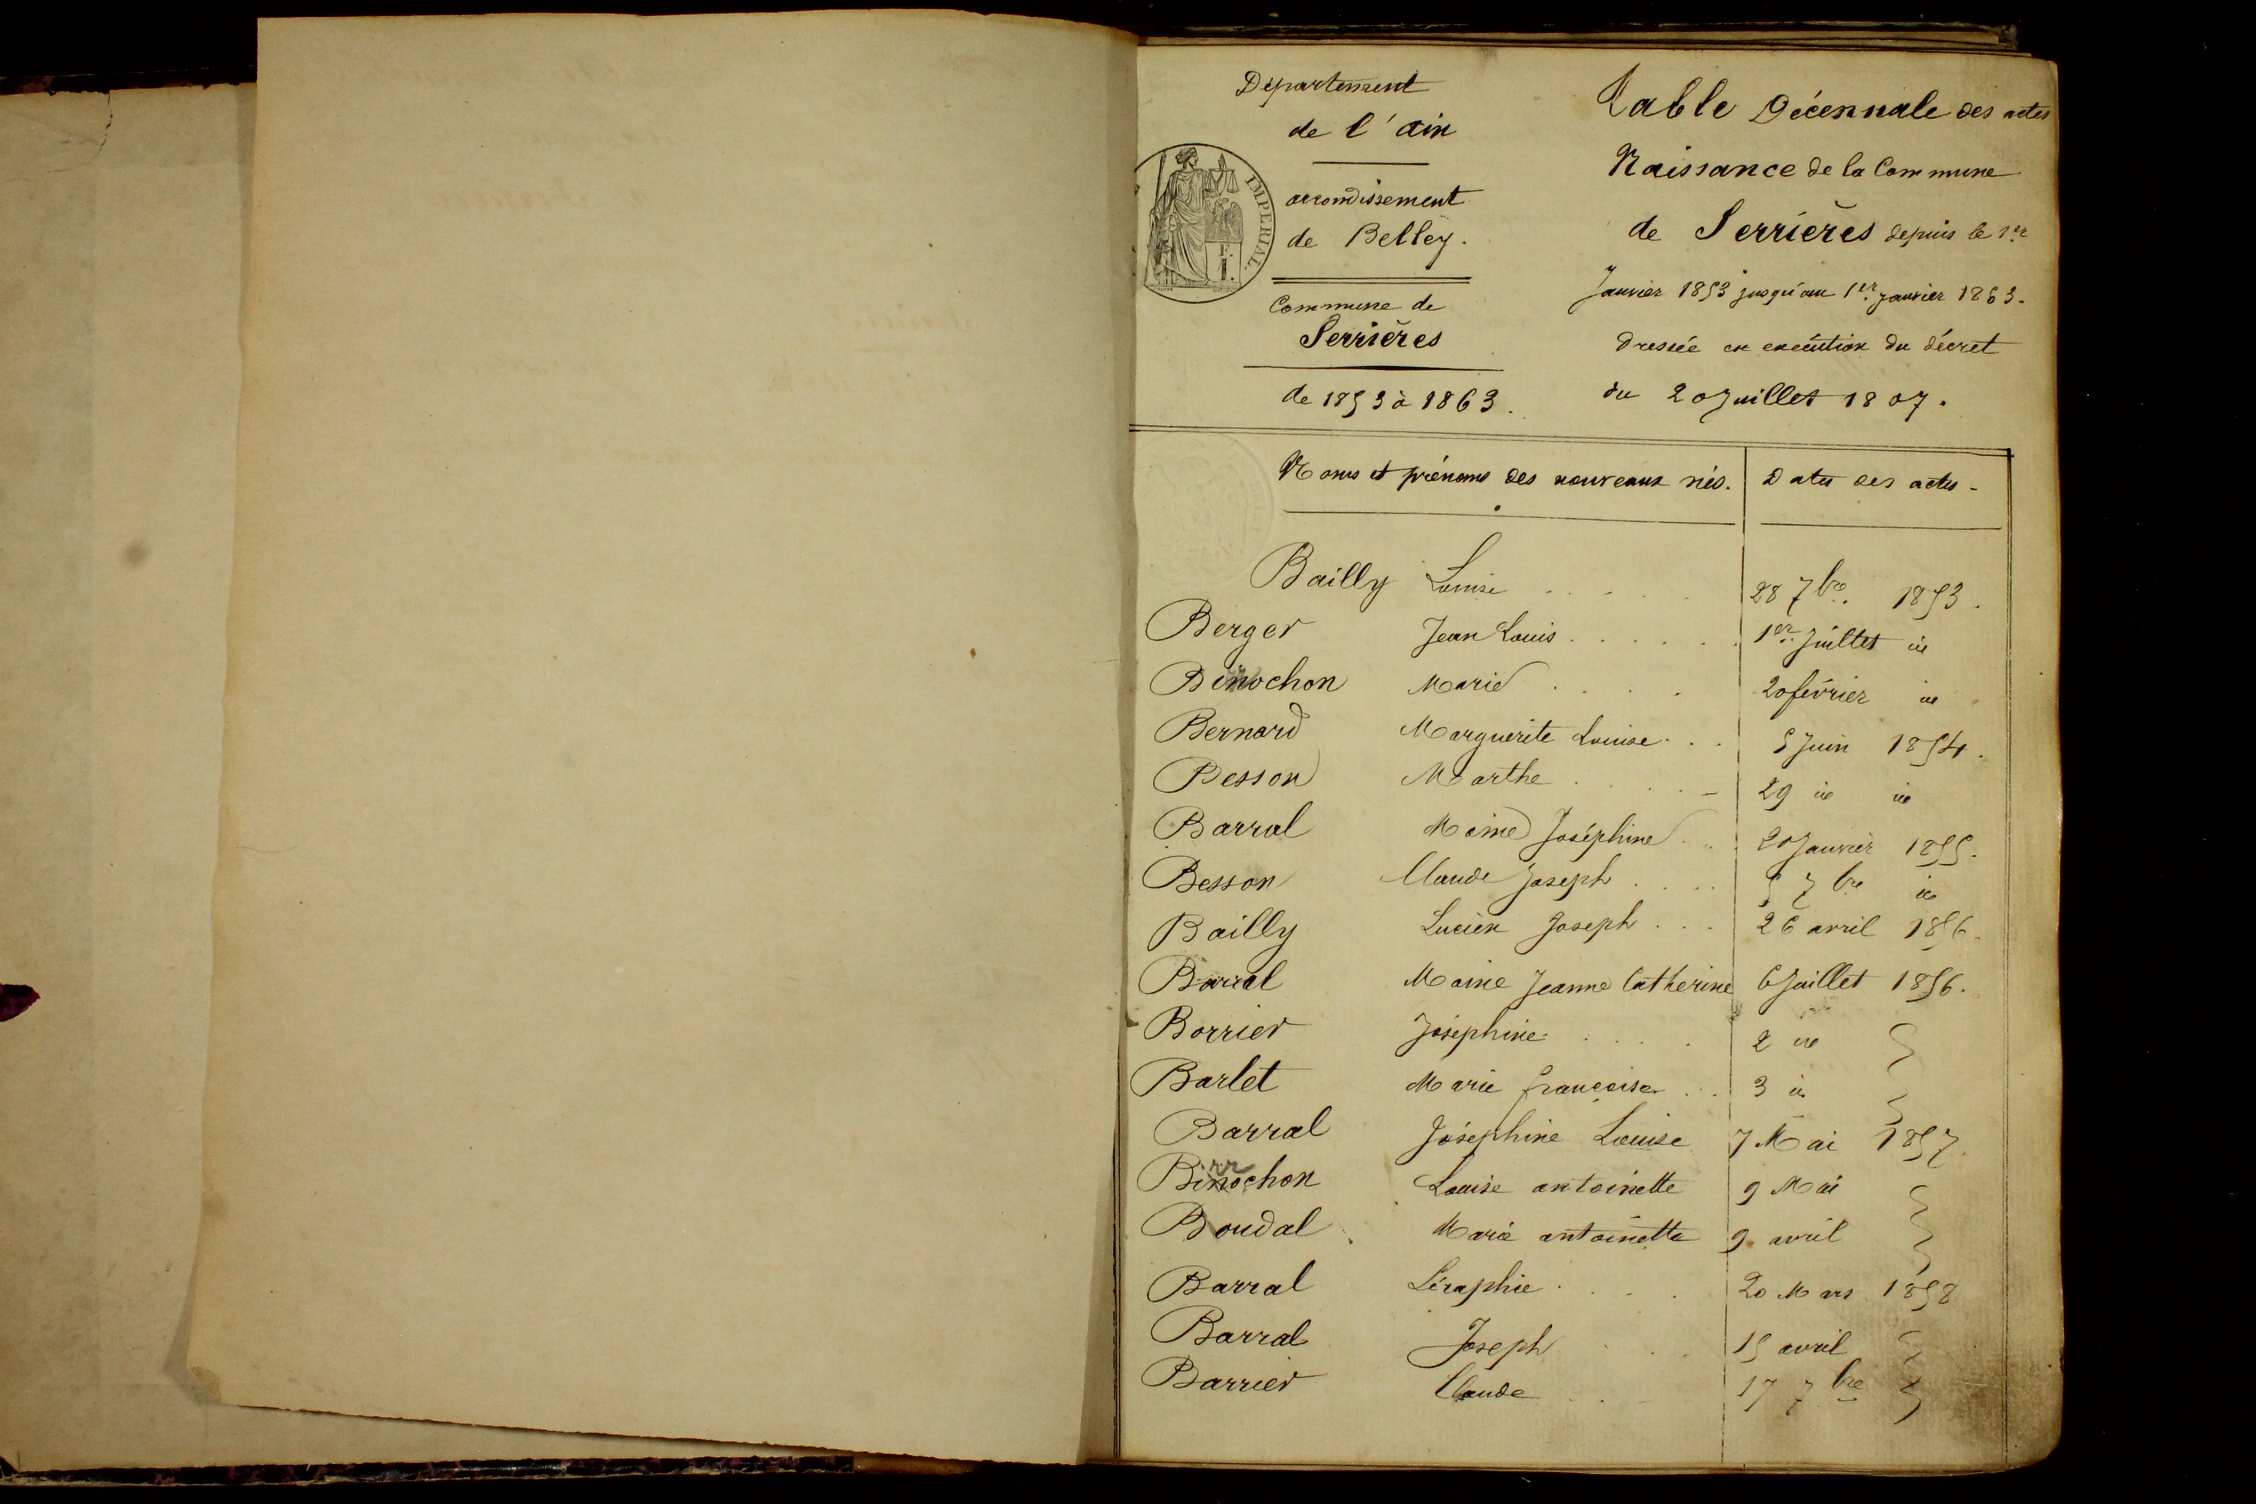 Département
de l'ain
arrondissement
de Belley.
Commune de
Serrières
de 1853 à 1863.
IMPERIAL.
Table Décennale des actes
Naissance de la Commune
de Serrières depuis le 1er
Janvier 1853 jusqu'au 1er janvier 1863.
Dressée en exécution du décret
du 20 Juillet 1807.
Noms et prénoms des nouveaux nés. Dates des actes.
Bailly Louise 28 7bre. 1853.
Berger Jean Louis 1er Juillet id
Binochon Marie 20 février id
Bernard Marguerite Louise 5 Juin 1854.
Besson Marthe 29 id id
Barral Marie Joséphine 20 Janvier 1855.
Besson Claude Joseph 5 7bre id
Bailly Lucien Joseph 26 avril 1856.
Barral Marie Jeanne Catherine 6 Juillet 1856.
Borrier Joséphine 2 id
Barlet Marie françoise 3 id
Barral Joséphine Louise 7 Mai 1857.
rr
Binochon Louise antoinette 9 Mai
Boudal Marie antoinette 9 avril
Barral Séraphie 20 Mars 1858
Barral Joseph 15 avril
Barrier Claude 17 7bre